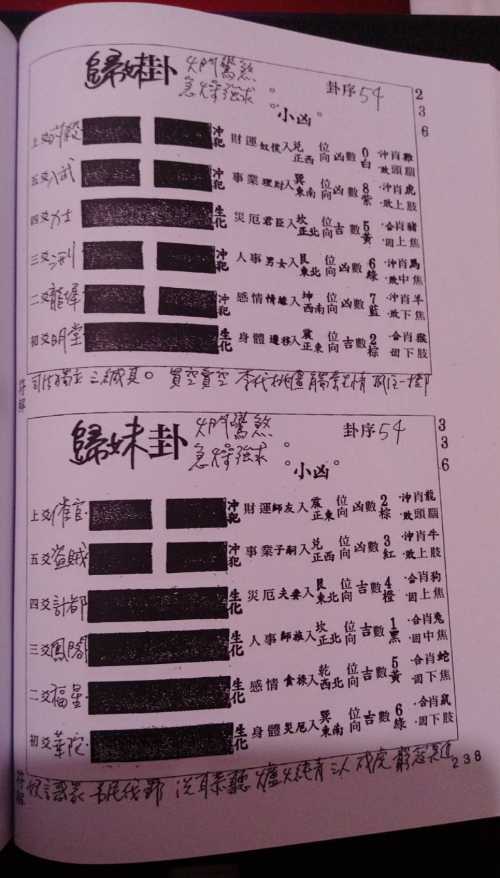 歸妹卦
火門鸞煞。
急燥強求。
卦序54
236
小凶。
上爻 冲犯 財運 奴僕入兌 正西 位向 凶數 0 白 ·沖肖雞 ·敗頭腦
五爻 冲犯 事業 理財入巽 東南 位向 凶數 8 紫 ·沖肖虎 ·敗上肢
四爻力士 生化 災厄 君臣入坎 正北 位向 吉數 5 黃 ·合肖豬 ·固上焦
三爻 冲犯 人事 男女入艮 東北 位向 凶數 6 綠 ·沖肖馬 ·敗中焦
二爻 冲犯 感情 情緣入坤 西南 位向 凶數 7 藍 ·沖肖羊 ·敗下焦
初爻明堂 生化 身體 遷移入震 正東 位向 吉數 2 棕 ·合肖猴 ·固下肢
買空賣空 李代桃僵
歸妹卦
火門鸞煞。
急燥強求。
卦序54
336
小凶。
上爻 冲犯 財運 師友入震 正東 位向 凶數 2 棕 ·沖肖龍 ·敗頭腦
五爻盜賊 冲犯 事業 子嗣入兌 正西 位向 凶數 3 紅 ·沖肖牛 ·敗上肢
四爻計都 生化 災厄 夫妻入艮 東北 位向 吉數 4 橙 ·合肖狗 ·固上焦
三爻鳳閣 生化 人事 師旅入坎 正北 位向 吉數 1 黑 ·合肖兔 ·固中焦
二爻福星 生化 感情 食祿入乾 西北 位向 吉數 5 黃 ·合肖蛇 ·固下焦
初爻華陀 生化 身體 災厄入巽 東南 位向 吉數 6 綠 ·合肖鼠 ·固下肢
洗耳恭聽 爐火純青 三人成虎
238